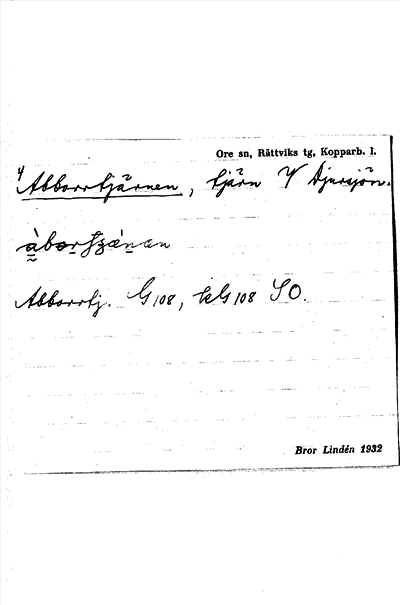 Ore sn, Rättviks tg, Kopparb. l.
4 Abborrtjärnen, tjärn V Djursjön.
Abborrtj. G108, kG108 SO.
Bror Lindén 1932